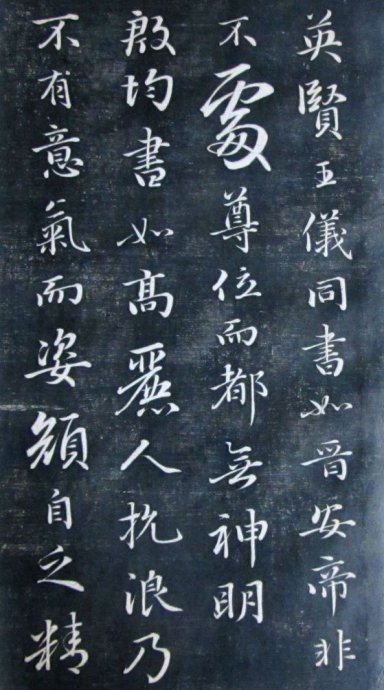 英賢王儀同書如晉安帝非
不處尊位而都無神明
殷均書如高麗人抗浪乃
不有意氣而姿顏自乏精